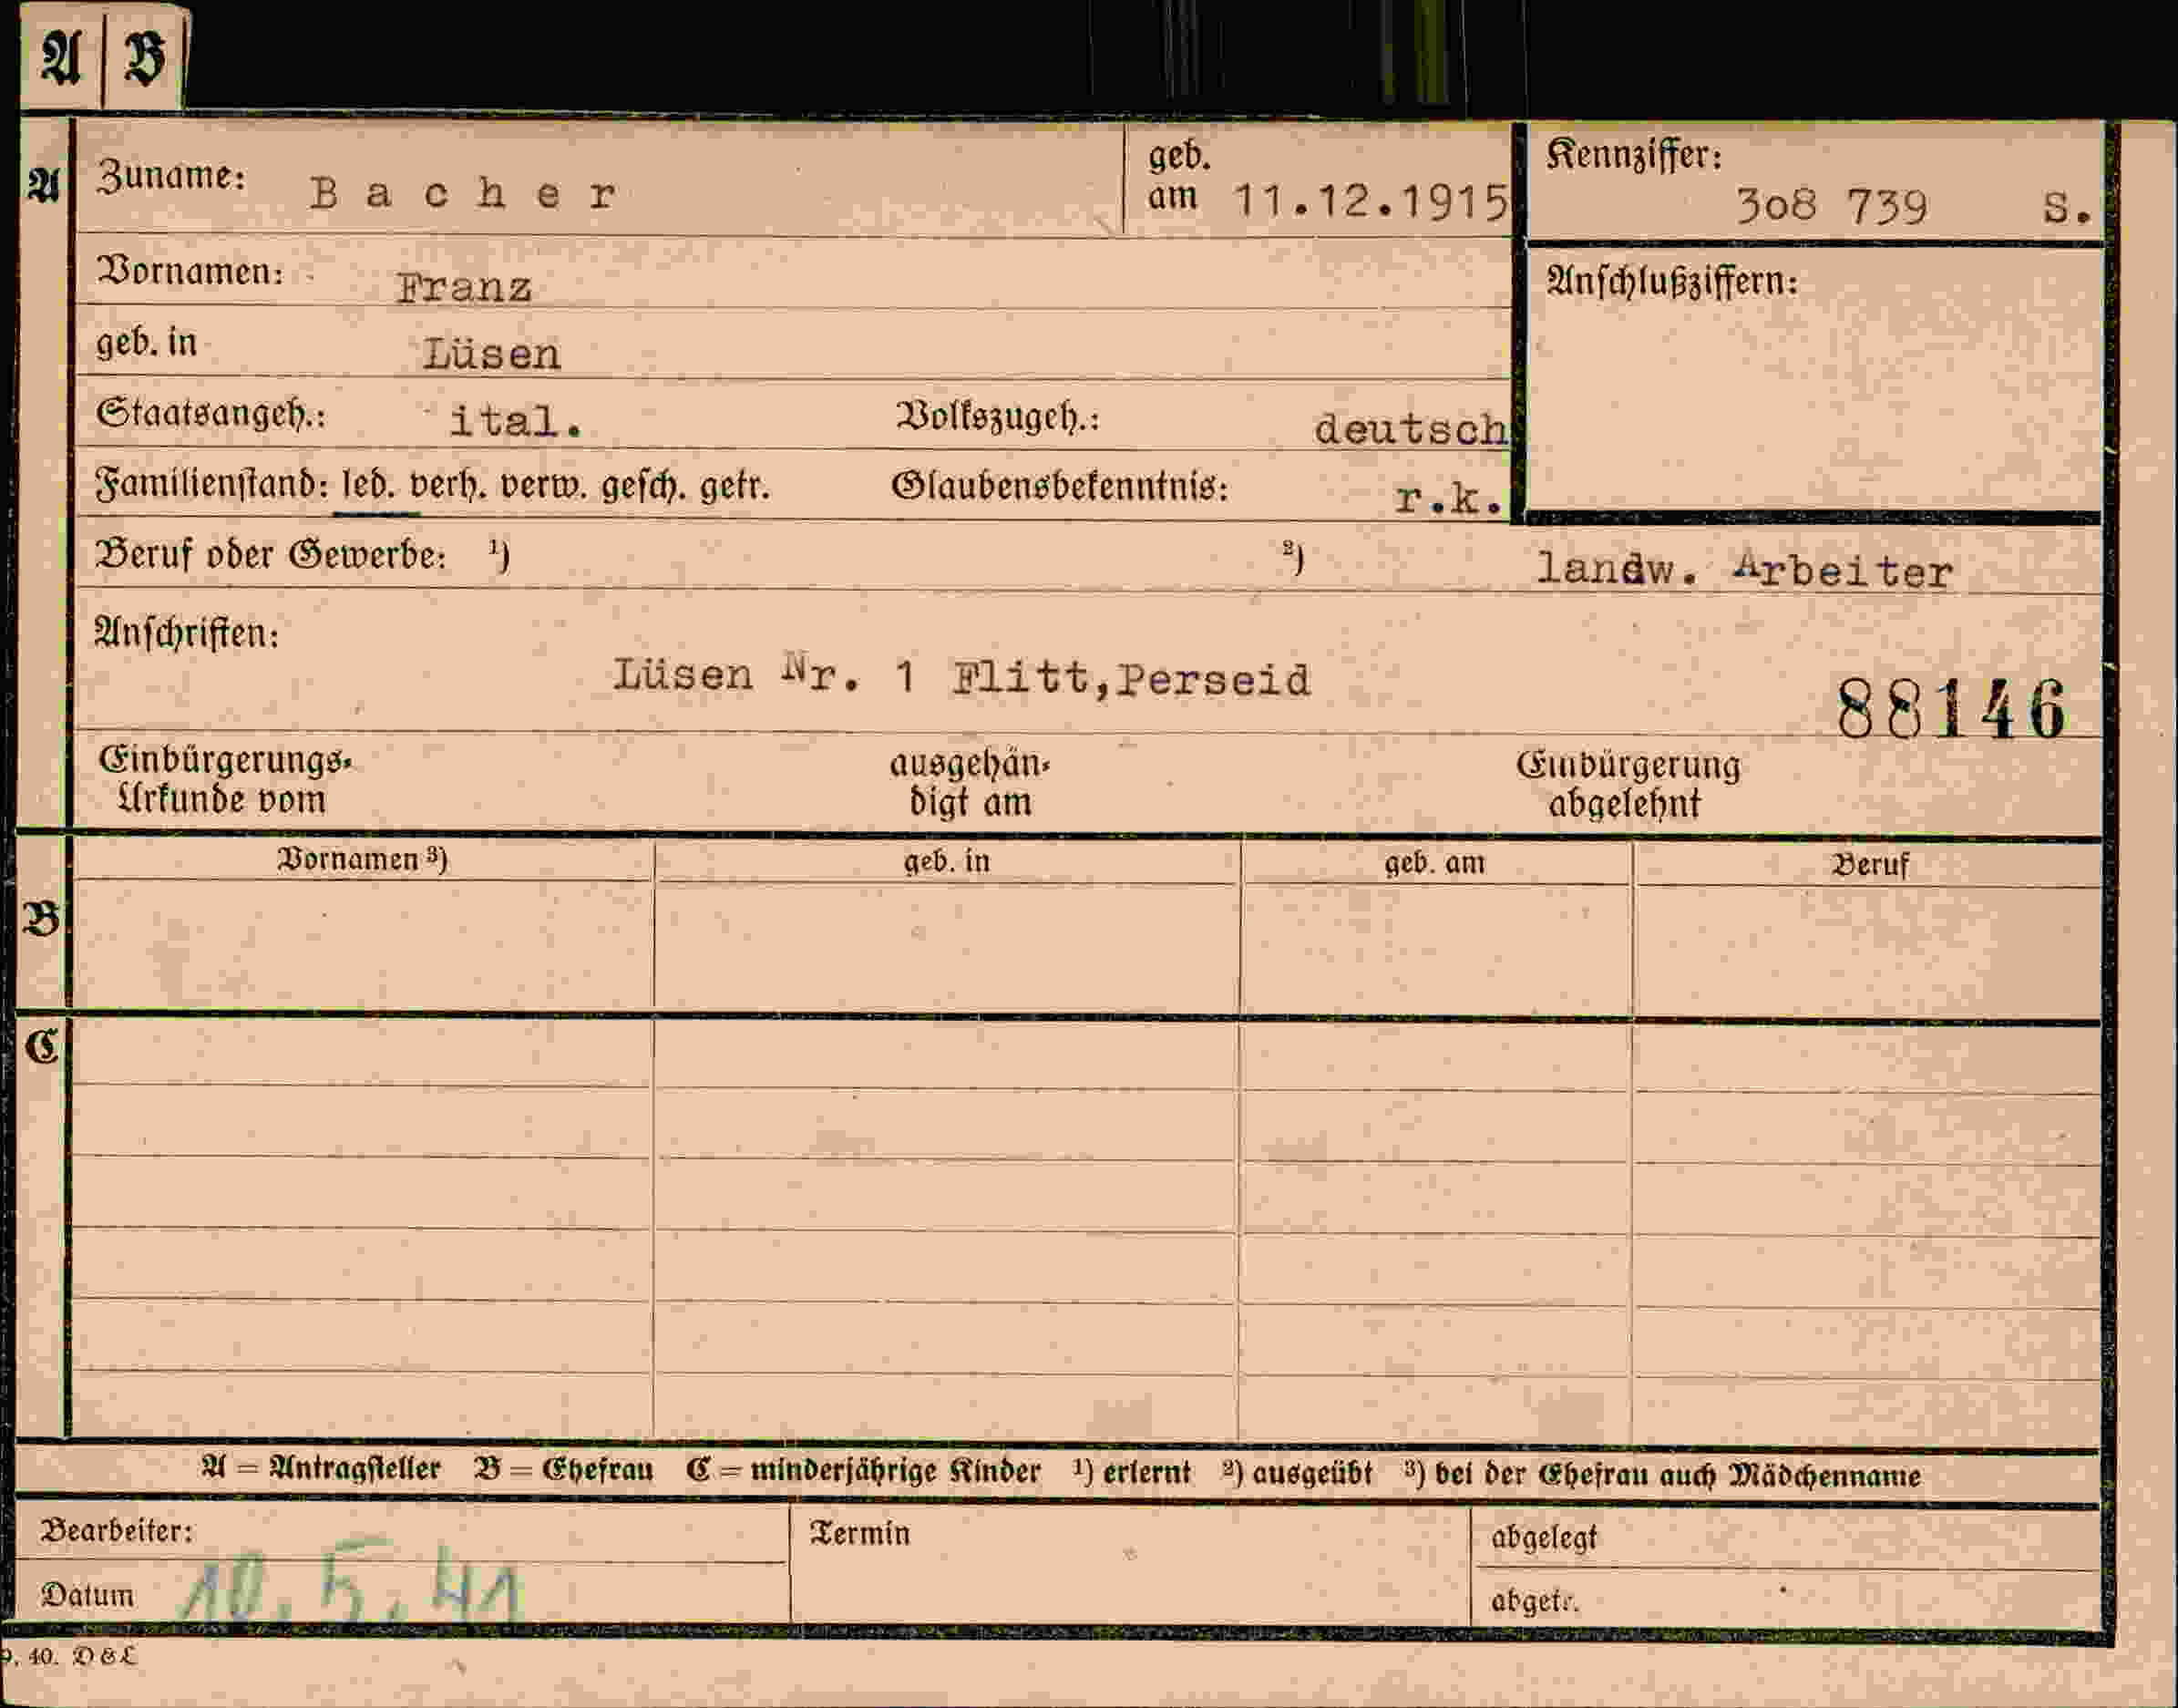 A B
A Zuname: Bacher geb. am 11.12.1915 Kennziffer: 308 739 S.
Vornamen: Franz Anschlußziffern:
geb. in Lüsen
Staatsangeh.: ital. Volkszugeh.: deutsch
Familienstand: led. verh. verw. gesch. getr. Glaubensbekenntnis: r.k.
Beruf oder Gewerbe: ¹) ²) landw. Arbeiter
Anschriften:
Lüsen Nr. 1 Flitt,Perseid
88146
Einbürgerungs- Urkunde vom ausgehän- digt am Einbürgerung abgelehnt
Vornamen ³) geb. in geb. am Beruf
B
C
A = Antragsteller B = Ehefrau C = minderjährige Kinder ¹) erlernt ²) ausgeübt ³) bei der Ehefrau auch Mädchenname
Bearbeiter: Termin abgelegt
Datum 10.5.41 abgetr.
9. 40. D & L